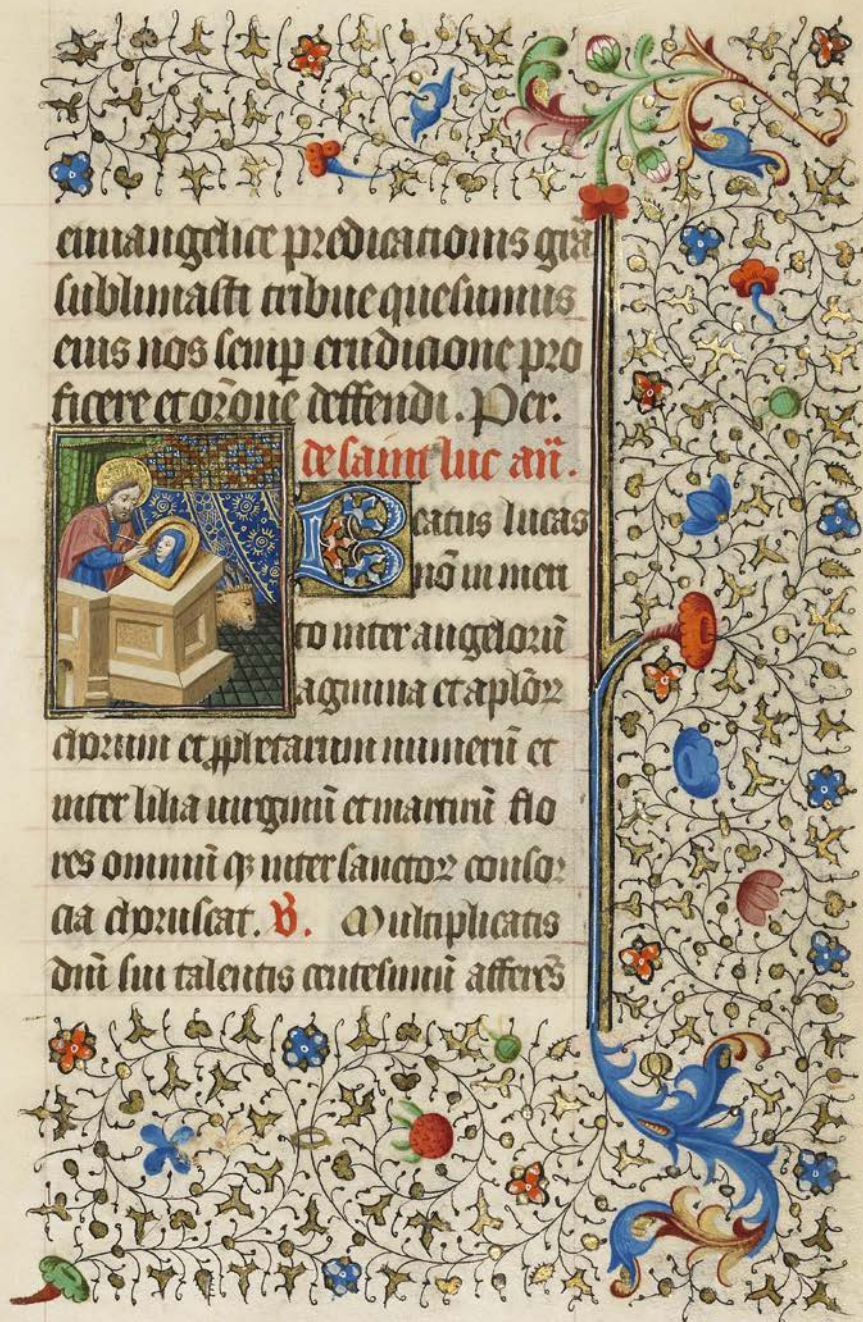 euuangelice predicationis grã
sublimasti tribue quesumus
eius nos semp̱ erudicione pro
ficere et orõne deffendi. Per.
de saint luc an̄.
Beatus lucas
nõ in meri
to inter angelorũ
agmina et aplõrꝝ
chorum et ꝓphetarum numerũ et
inter lilia uirginũ et martirũ flo
res omniũ qꝫ inter sanctorꝝ consor
cia choruscat. V̄. Multiplicatis
dñi sui talentis centesimũ afferẽs